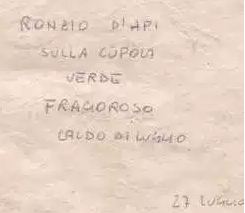 RONZIO D'API
SULLA CUPOLA
VERDE
FRAGOROSO
CALDO DI LUGLIO
27 LUGLIO